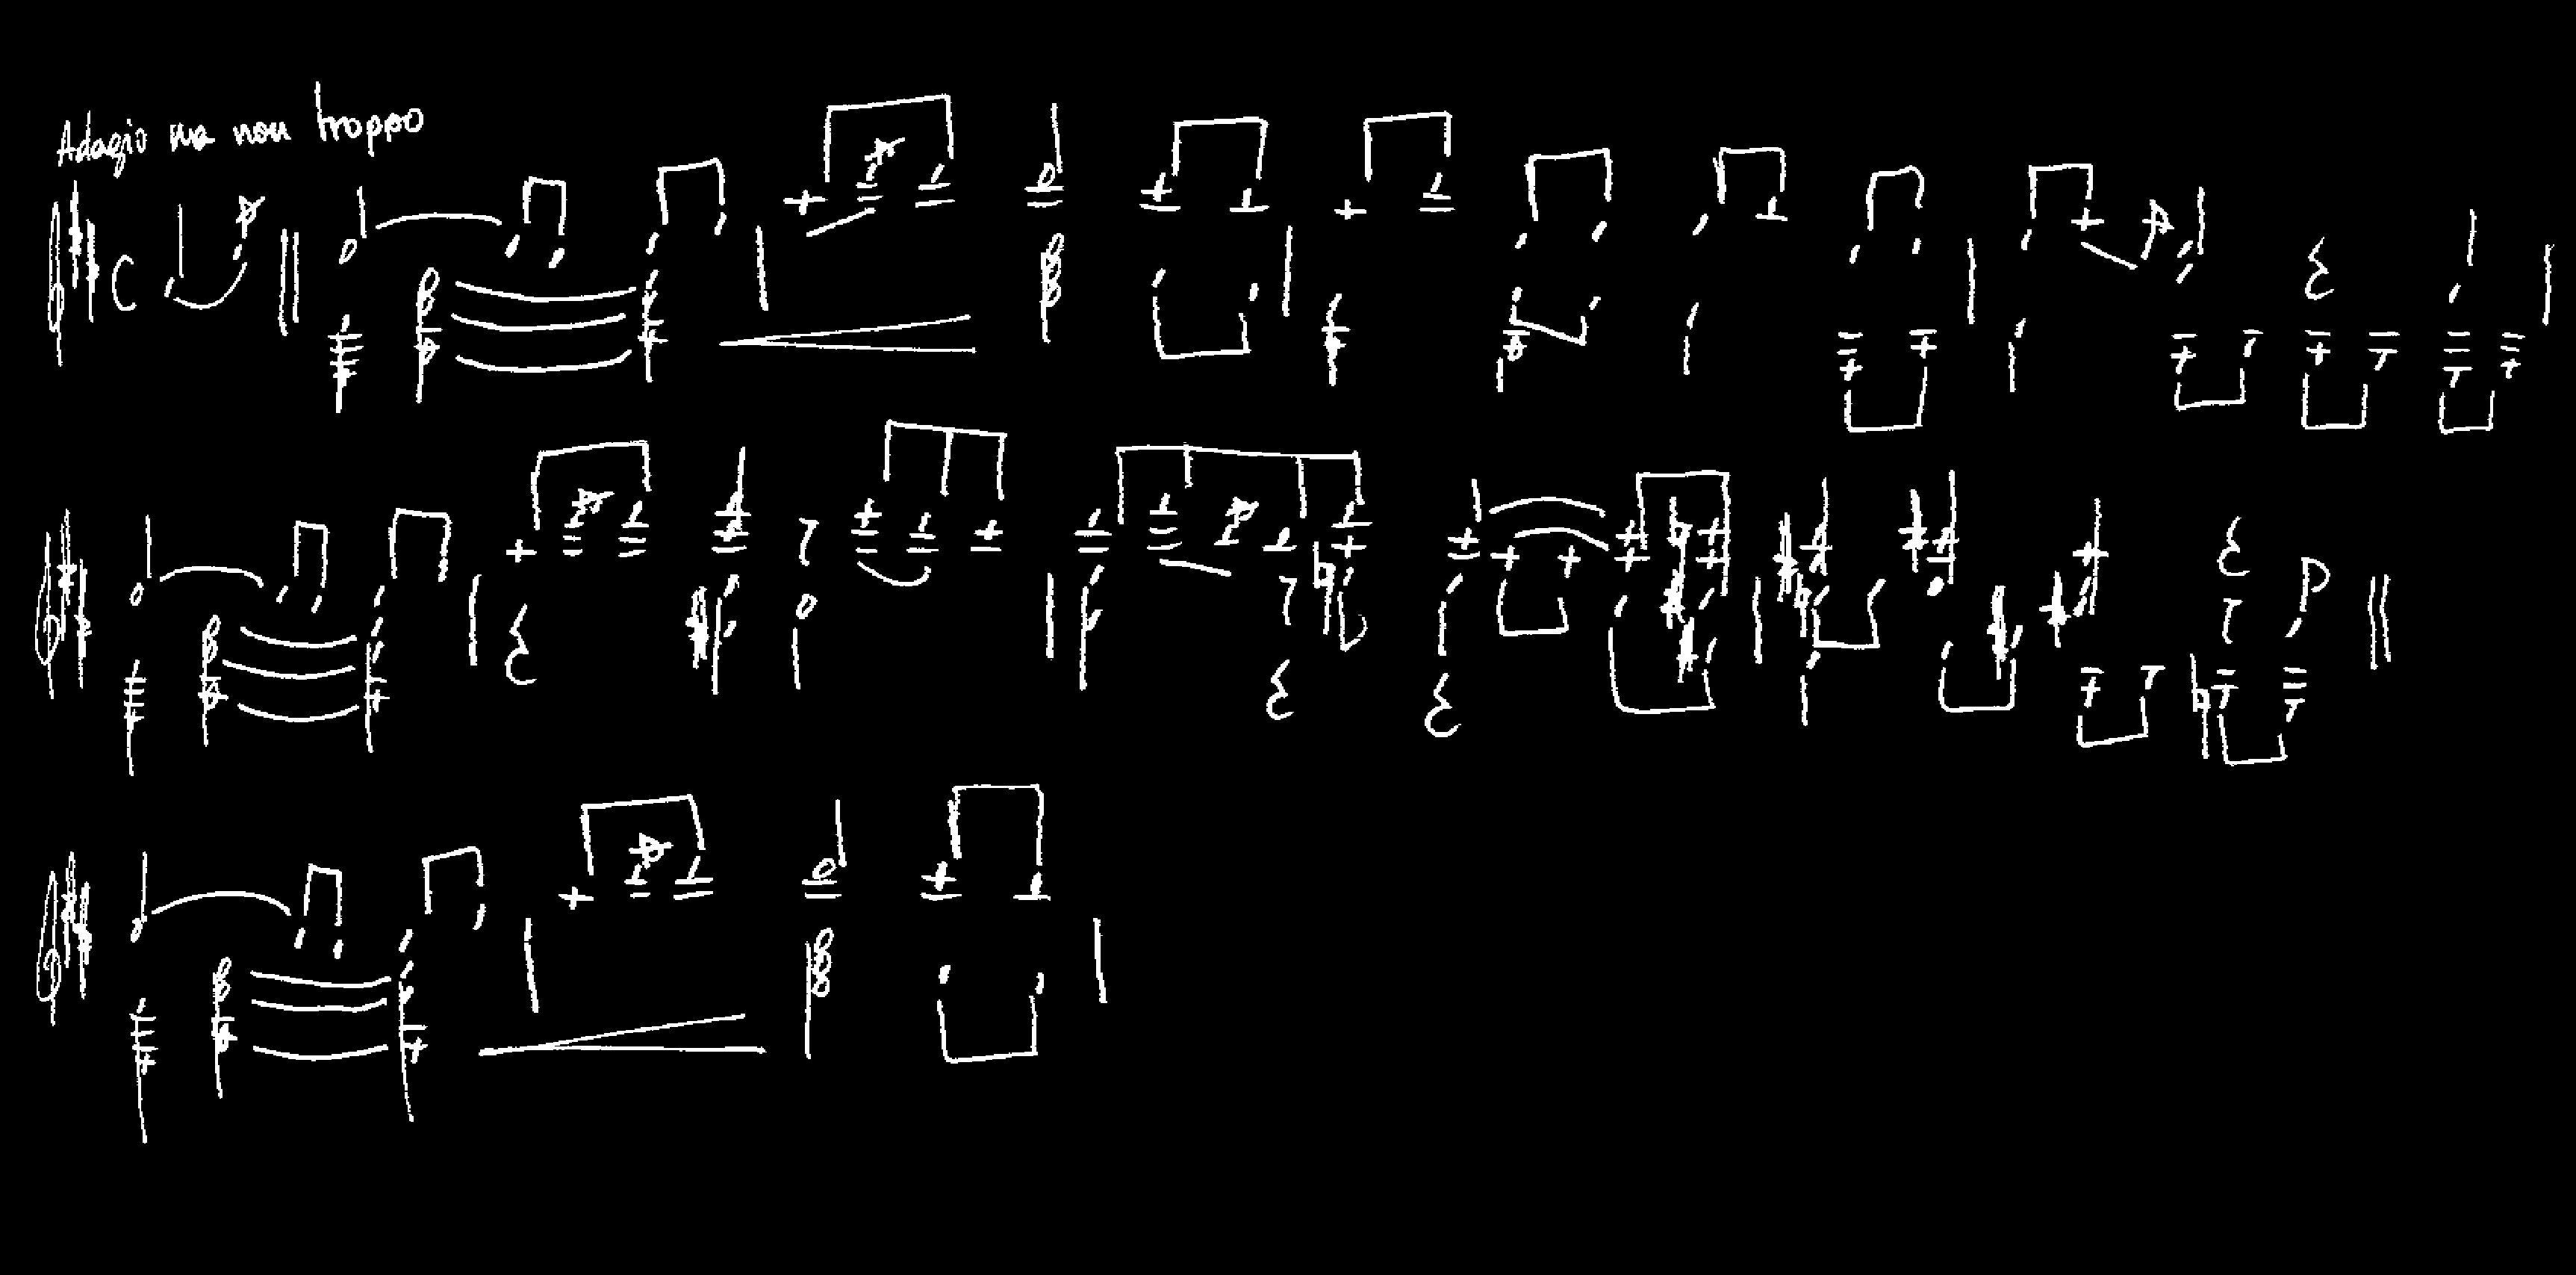 Adagio ma non troppo